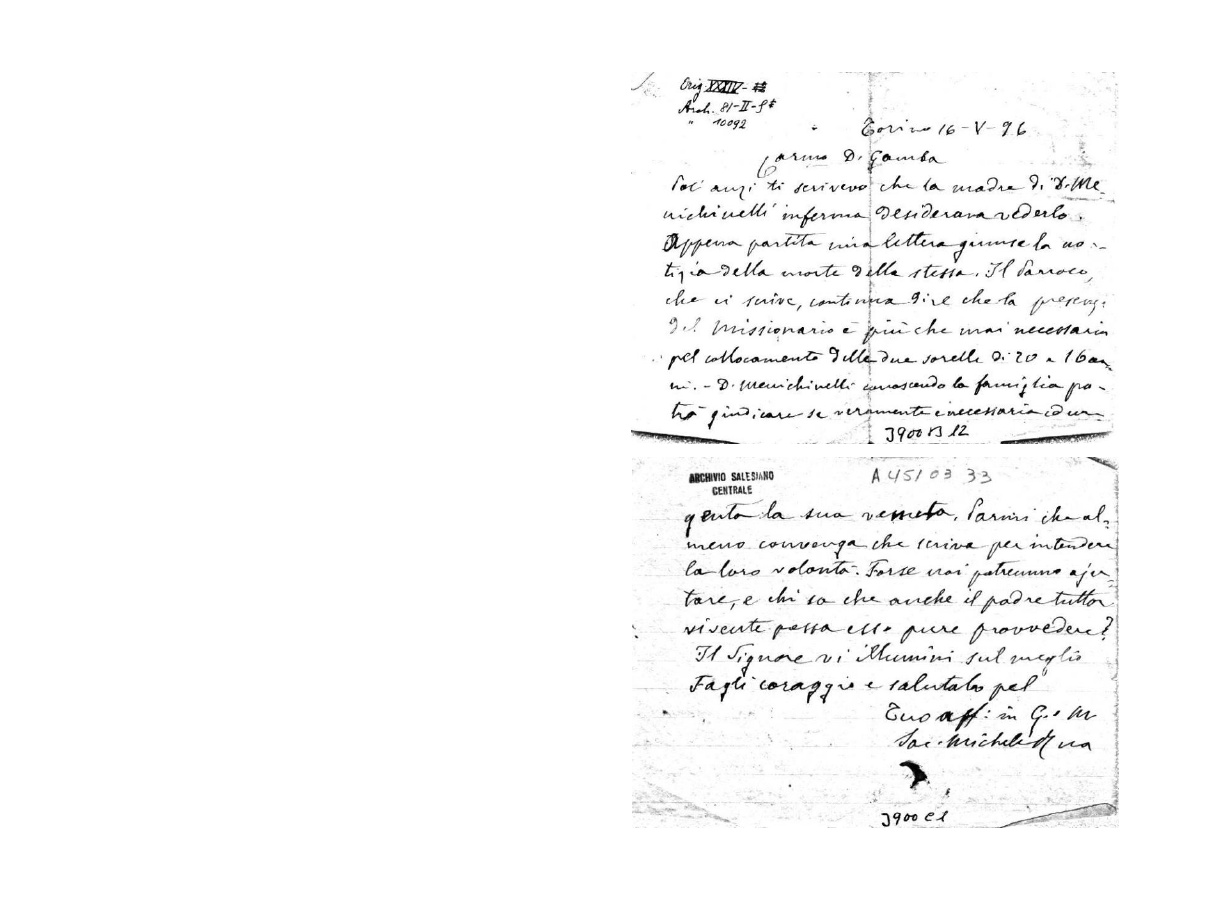 Orig XXXIV-
Arch. 81-II-9
" 10092
Torino 16-V-96
Carmo D. Gamba
Poc' anzi ti scrivevo che la madre di D. Me
nichinelli inferma desiderava vederlo.
Appena partita mia lettera giunse la no-
tizia della morte della stessa. Il Parroco,
che ci scrive, continua dire che la presenz.
del missionario è più che mai necessaria
pel collocamento delle due sorelle di 20 e 16 an
ni. - D. Menichinelli conoscendo la famiglia po-
trà giudicare se veramente è necessaria ed ur
J900 B 12
ARCHIVIO SALESIANO
CENTRALE
A 451 03 33
gente la sua venuta. Parmi che al-
meno convenga che scriva per intendere
la loro volontà. Forse noi potremmo aju-
tare, e chi sa che anche il padre tuttor
vivente possa esso pure provvedere?
Il Signore vi illumini sul meglio
Fagli coraggio e salutalo pel
Tuo aff: in G. e M
Sac. Michele Rua
J900 C1